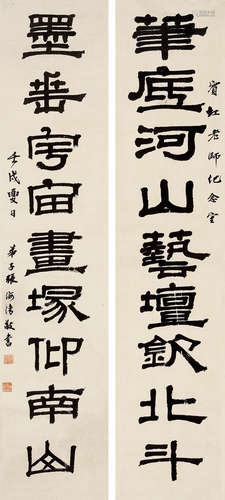 賓虹老師紀念室
筆底河山藝壇欽北斗
墨垂宇宙畫塚仰南山
壬戌夏日
弟子張海敬書